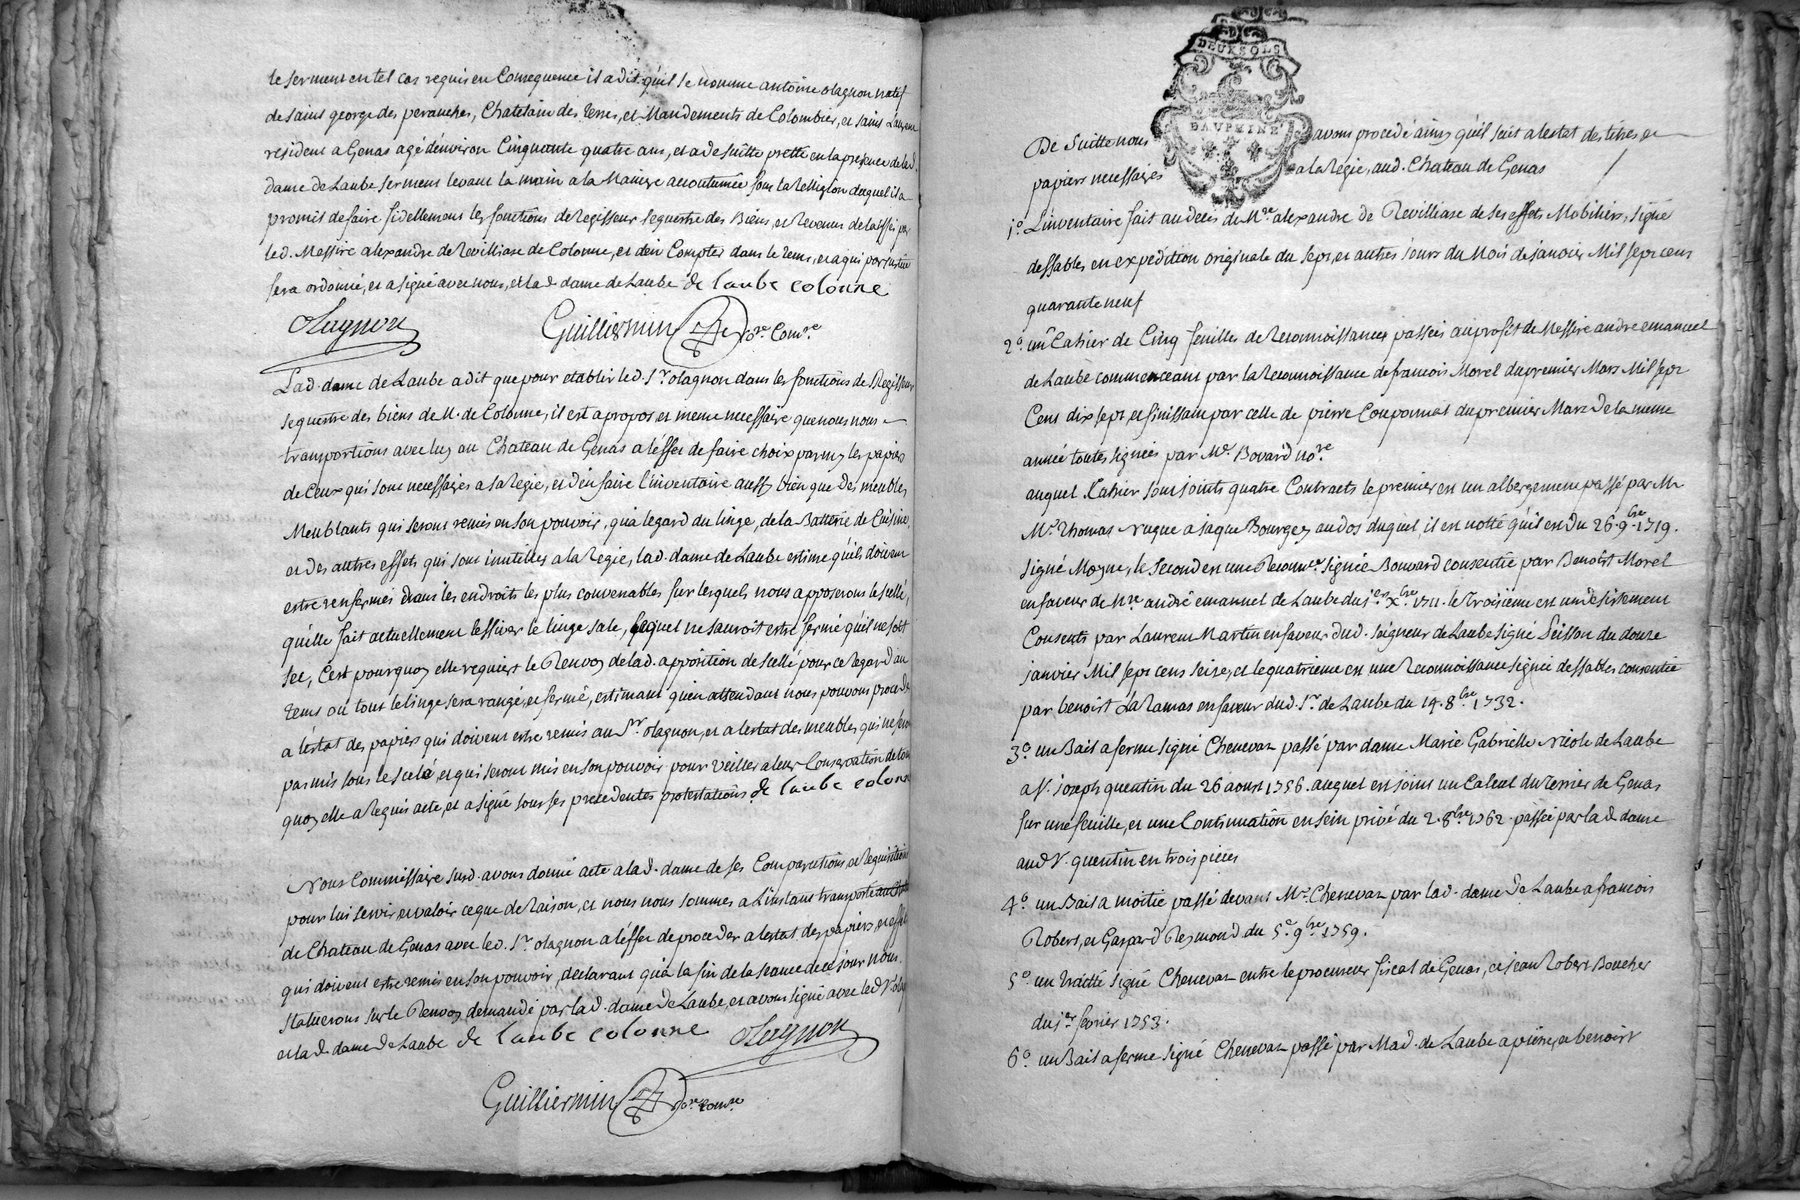 le serment en tel cas requis en Consequence il a dit qu'il se nomme antoine olagnon natif
de saint george des peranches, Chatelain des terres, et Mandements de Colombier, et saint Laurent
resident a Genas agé d'environ Cinquante quatre ans, et a de suitte pretté en la presence de lad.
dame de Laube serment levant la main a la Maniere accoutumée sous la Relligion duquel il a
promis de faire fidellement les fonctions de Regisseur sequestre des Biens, et Revenus delaissés par
led. Messire alexandre de Revilliase de Colonne, et d'en Compter dans le tems, et a qui par justice
sera ordonné, et a signé avec nous, et lad dame de Laube de laube colonne
Olagnon Guilliermin no.re Com.re
Lad. dame de Laube a dit que pour etablir led. Sr. olagnon dans les fonctions de Regisseur
sequestre des biens de M. de Colonne, il est a propos et meme necessaire que nous nous
transportions avec luy au Chateau de Genas a l'effet de faire choix parmy les papiers
de Ceux qui sont necessaires a sa Regie, et d'en faire l'inventaire aussy bien que des meubles
Meublants qui seront remis en son pouvoir, qu'a l'egard du linge, de la Batterie de Cuisine
et des autres effets qui sont inutilles a la Regie, lad. dame de Laube estime qu'ils doivent
estre renfermés dans les endroits les plus convenables sur lesquels nous apposerons le scellé,
qu'elle fait actuellement lessiver le linge sale, lequel ne sauroit estre fermé qu'il ne soit
sec, C'est pourquoy elle requiert le Renvoy de lad. apposition de scellé pour ce Regard au
tems ou tout le linge sera rangé, et fermé, estimant qu'en attendant nous pouvons proceder
a l'estat des papiers qui doivent estre remis au Sr. olagnon, et a l'estat des meubles qui ne seront
pas mis sous le scelé, et qui seront mis en son pouvoir pour veiller a leur Conservation de tout
quoy elle a Requis acte, et a signé sous ses precedentes protestations de laube colonne
Nous Commissaire susd. avons donné acte a lad. dame de ses Comparutions et Requisitions
pour lui servir, et valoir ce que de raison, et nous nous sommes a L'instant transporté
de Chateau de Genas avec led. Sr. olagnon a l'effet de proceder a l'estat des papiers, et effets
qui doivent estre remis en son pouvoir, declarant qu'a la fin de la seance de ce jour nous
statuerons sur le Renvoy demandé par lad. dame de Laube, et avons signé avec led. S. olagnon
et lad dame de Laube de laube colonne Olagnon
Guilliermin no.re com.re
DEUX SOLS
DAUPHINÉ
De Suitte nous avons procedé ainsy qu'il suit a l'estat des titres et
papiers necessaires a la Regie, aud. Chateau de Genas
1° L'inventaire fait au deces de Mre. alexandre de Revilliase de ses effets Mobiliers, signé
dessables en expédition originale du sept, et autres jours du Mois de janvier Mil sept cens
quarante neuf
2° un Cahier de Cinq feuilles de Reconnoissances passées au profit de Messire andre emanuel
de Laube commenceant par la Reconnoissance de francois Morel du premier Mars Mil sept
Cens dix sept, et finissant par celle de pierre Couponnat du premier Mars de la meme
année toutes signées par Me. Bovard no.re
auquel Cahier sont joints quatre Contracts le premier est un albergement passé par Mr.
Me. Thomas rugue a jaque Bourgey au dos duquel il est notté qu'il est du 26. 9.bre 1719.
signé Moyne, le second est une Reconn.ce signée Bouvard consentie par Benoît Morel
en faveur de Mre. andré emanuel de Laube du 1.er X.bre 1711. le troisieme est un desistement
Consenti par Laurent Martin en faveur dud. seigneur de Laube signé Peisson du douze
janvier Mil sept cens seize, et le quatrieme est une Reconnoissance signée dessables consentie
par benoist LaRamas en faveur dud. Sr. de Laube du 14. 8.bre 1732.
3° un Bail a ferme signé Chenevaz passé par dame Marie Gabrielle Nicole de Laube
a S. joseph quentin du 26 aoust 1756. auquel est joint un Calcul du terrier de Genas
sur une feuille, et une Continuation en sein privé du 2. 8.bre 1762 passée par lad dame
aud S. quentin en trois pieces
4° un Bail a moitié passé devant Me. Chenevaz par lad. dame de Laube a francois
Robert, et Gaspard Reymond du 5e. 9.bre 1759.
5° un traitté signé Chenevaz entre le procureur fiscal de Genas, et jean Robert Boucher
du 1.er fevrier 1753.
6° un Bail a ferme signé Chenevaz passé par Mad. de Laube a pierre, et benoist